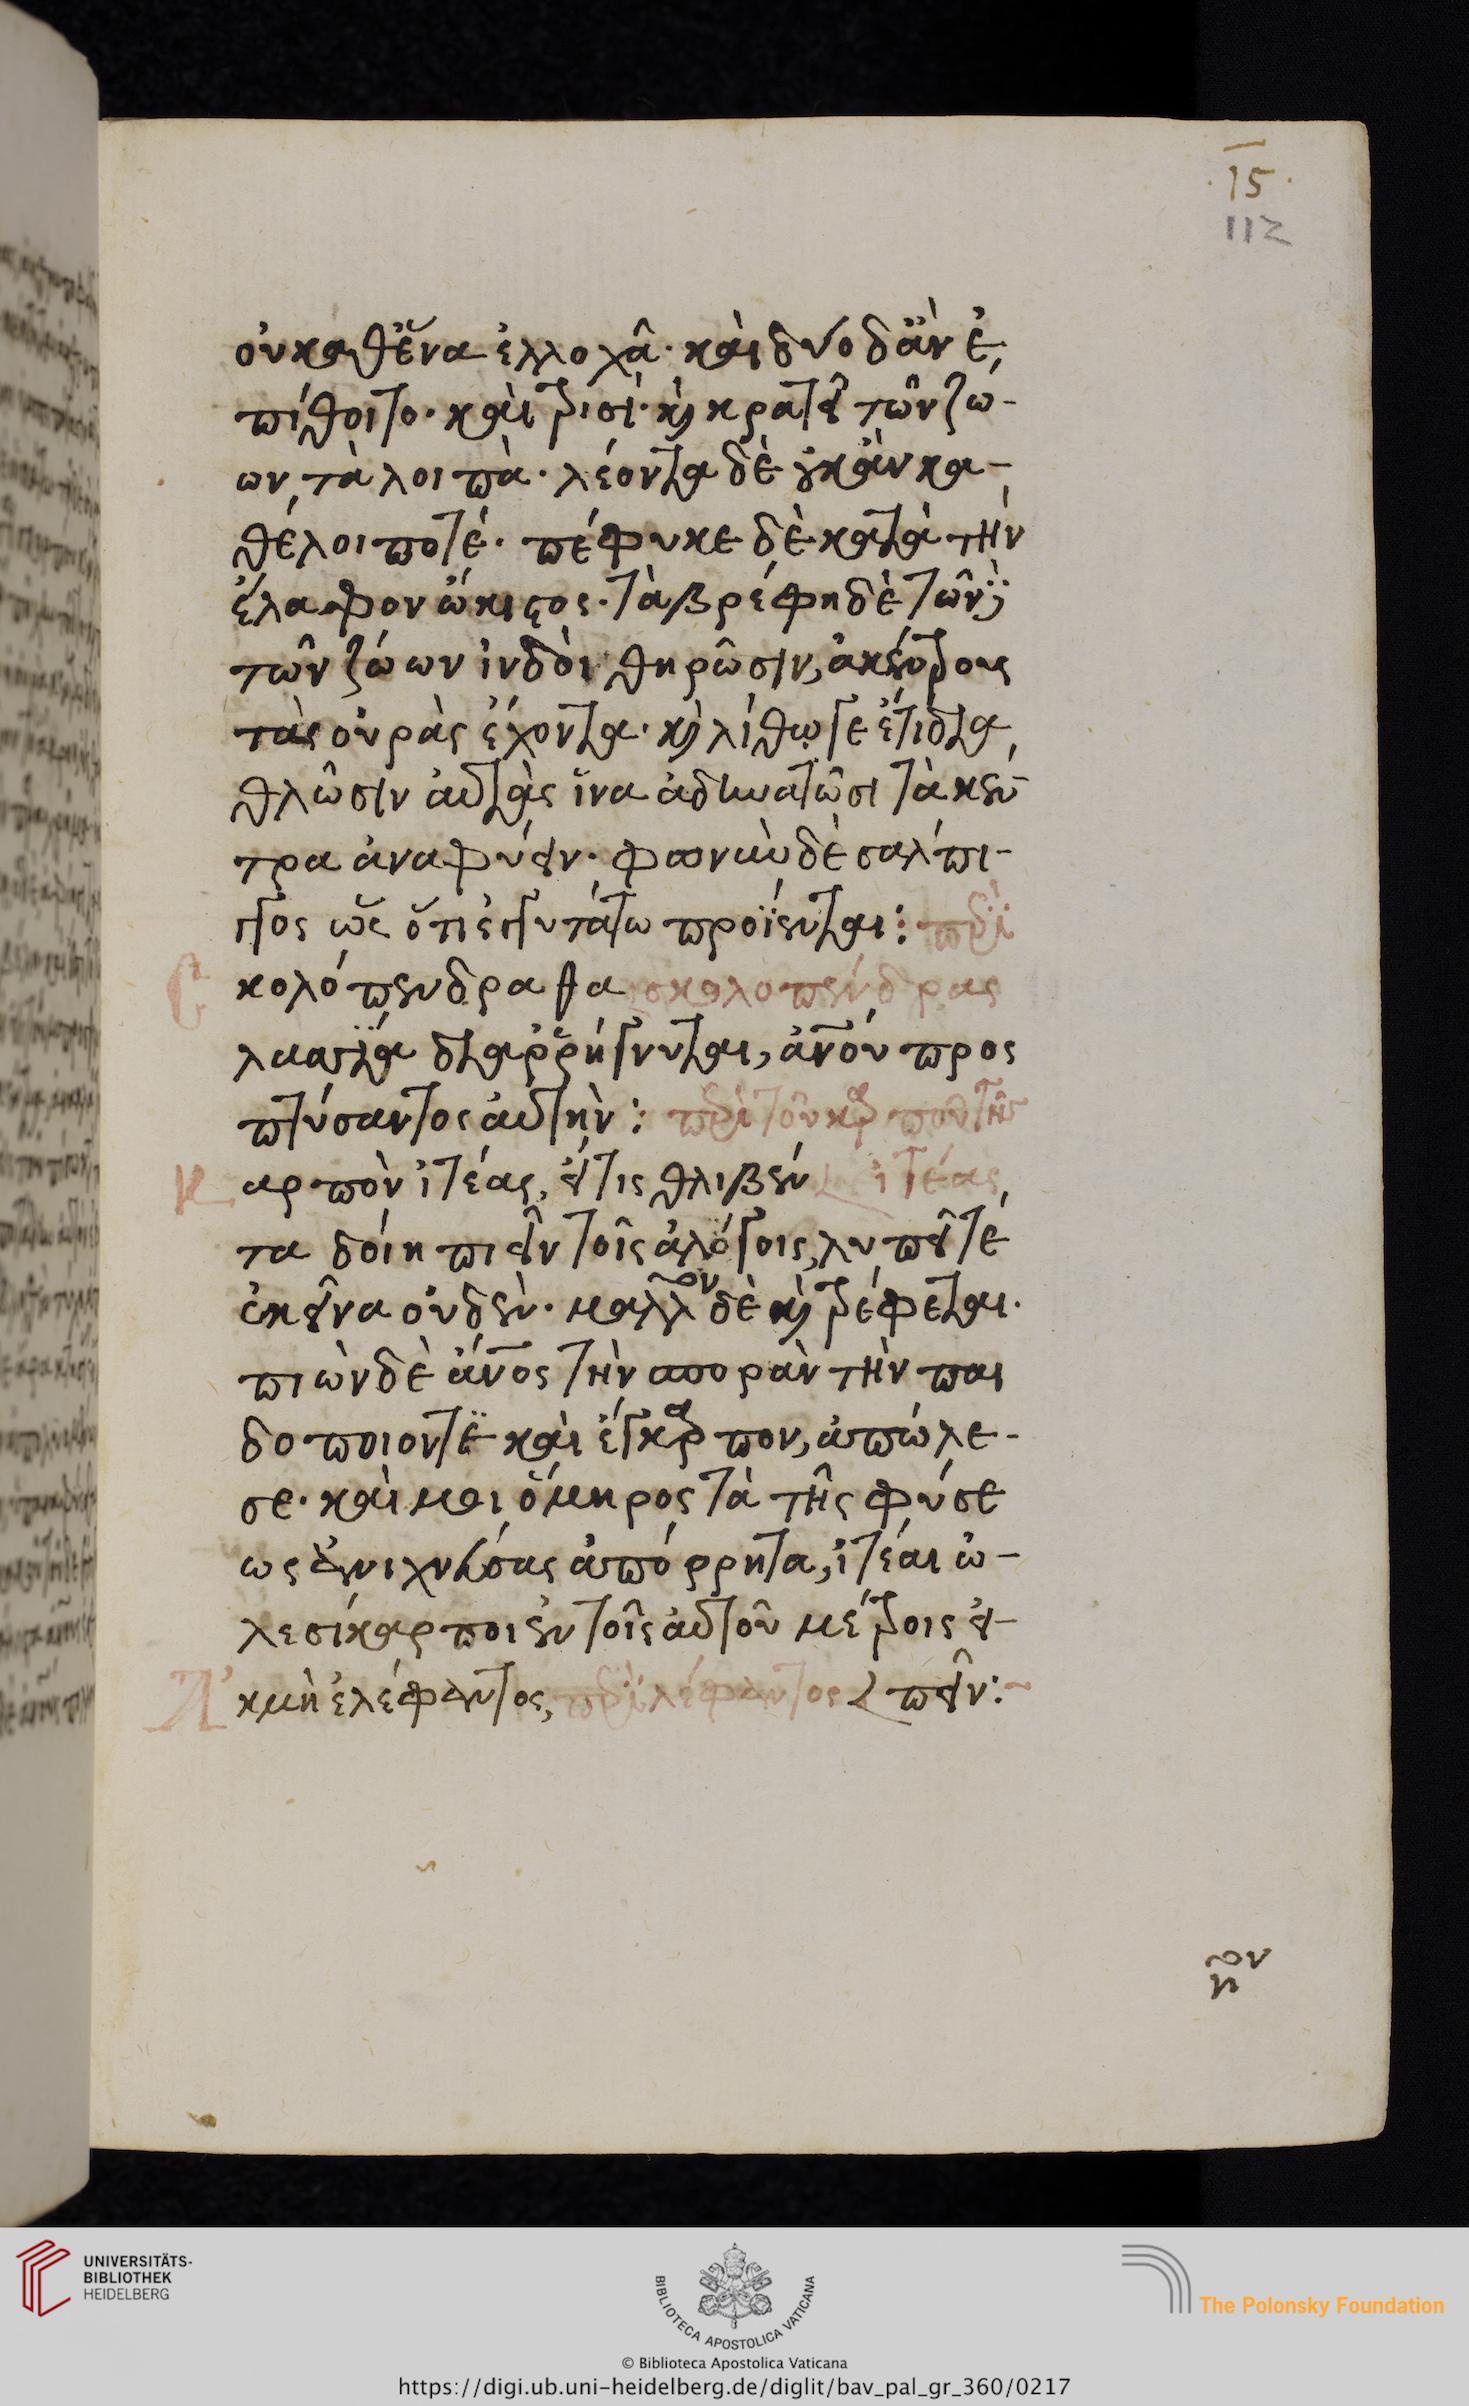 ·15·
112
οὐ καθένα ἐλλοχᾶ· καὶ δύο δ' ἂν ἐ
πίθοιτο· καὶ τρισί· καὶ κρατεῖ τῶν ζώ-
ων τὰ λοιπὰ· λέοντα δὲ οὐκ ἂν κα-
θέλοι ποτέ· πέφυκε δὲ κατὰ τὴν
ἔλαφον ὤκιστος· τὰ βρέφη δὲ τῶνδε
τῶν ζώων ἰνδοὶ θηρῶσιν, ἀκέντρους
τὰς οὐρὰς ἔχοντα· καὶ λίθω γε ἔτι δια
θλῶσιν αὐτὰς ἵνα ἀδυνατῶσι τὰ κέν
τρα ἀναφύειν· φωνὴν δὲ σάλπι-
γγος ὡς ὅτι ἐγγυτάτω προΐενται: περὶ
Σ κολόπενδρα θα σκολοπένδρας
λαττία διαρρήγνυται, ἀνου προς
πτύσαντος αὐτὴν: περὶ τοῦ καρποῦ τῆς
Κ αρπὸν ἰτέας, εἴ τις θλιβέν ἰτέας
τα δοίη πιεῖν τοῖς ἀλόγοις, λυπεῖτε
ἐκεῖνα οὐδέν· μᾶλλον δὲ καὶ τρέφεται·
πιὼν δὲ ἄνος τὴν σποράν τὴν παι
δοποιόν τε καὶ ἔγκαρπον, ἀπώλε-
σε· καὶ μοι ὅμηρος τὰ τῆς φύσε
ως ἀνιχνεύσας ἀπόρρητα, ἰτέαι ὠ-
λεσίκαρποι ἐν τοῖς αὐτοῦ μέτροις εἰ-
Ἀ κμὴ ἐλέφαντος, περὶ ἐλέφαντος πεῖν:
UNIVERSITÄTS-
BIBLIOTHEK
HEIDELBERG
BIBLIOTECA APOSTOLICA VATICANA
The Polonsky Foundation
© Biblioteca Apostolica Vaticana
https://digi.ub.uni-heidelberg.de/diglit/bav_pal_gr_360/0217